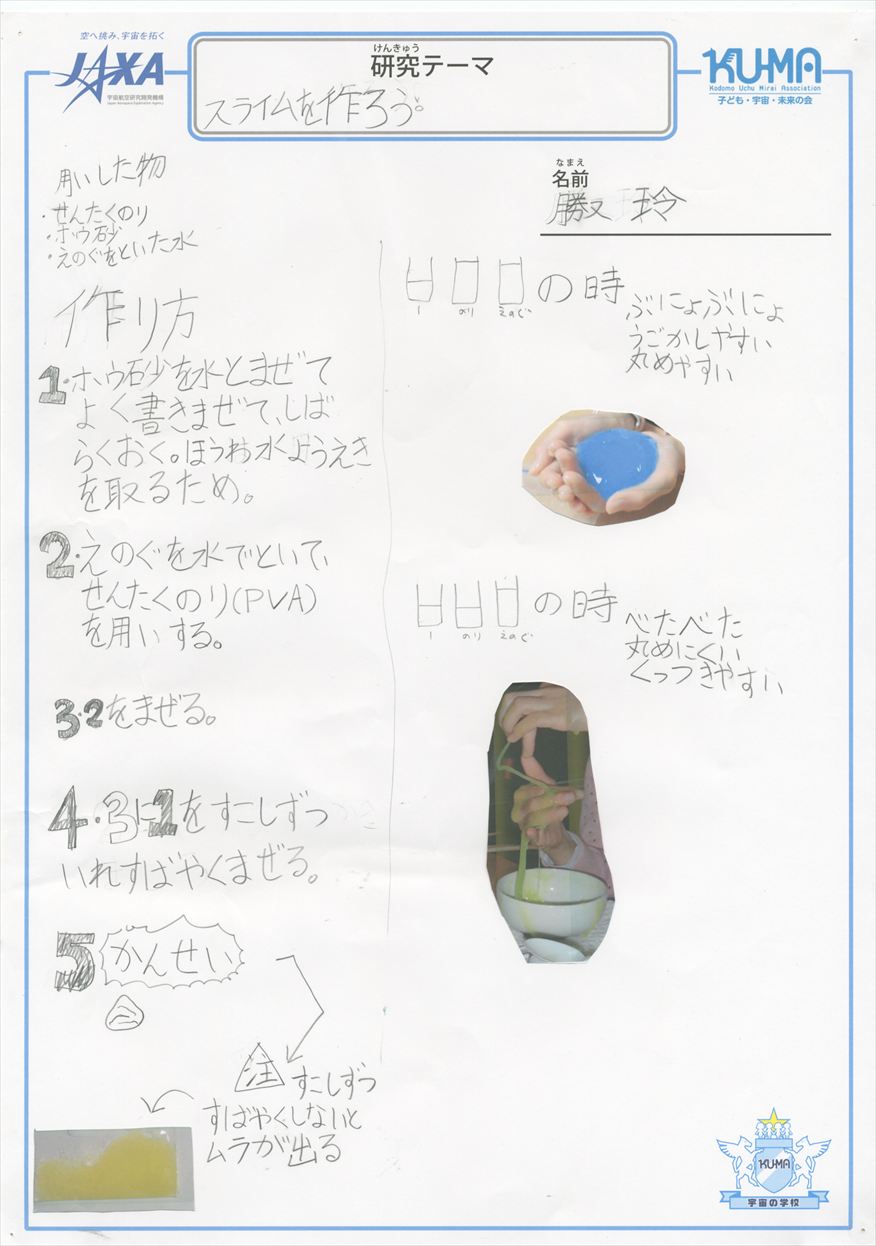 空へ挑み、宇宙を拓く
JAXA
宇宙航空研究開発機構
Japan Aerospace Exploration Agency
けんきゅう
研究テーマ
スライムを作ろう。
KU-MA
Kodomo Uchu Mirai Association
子ども・宇宙・未来の会
なまえ
名前
玲
用いした物
・せんたくのり
・ホウ砂
・えのぐをといた水
作り方
1・ホウ砂を水とまぜて
よく書きまぜて、しば
らくおく。ほうわ水ようえき
を取るため。
2・えのぐを水でといて、
せんたくのり(PVA)
を用いする。
3・2をまぜる。
4・3に1をすこしずつ
いれすばやくまぜる。
5 かんせい
注 すこしずつ
すばやくしないと
ムラが出る
の時
1 のり えのぐ
ぶにょぶにょ
うごかしやすい
丸めやすい
の時
1 のり えのぐ
べたべた
丸めにくい
くっつきやすい
KU-MA
宇宙の学校